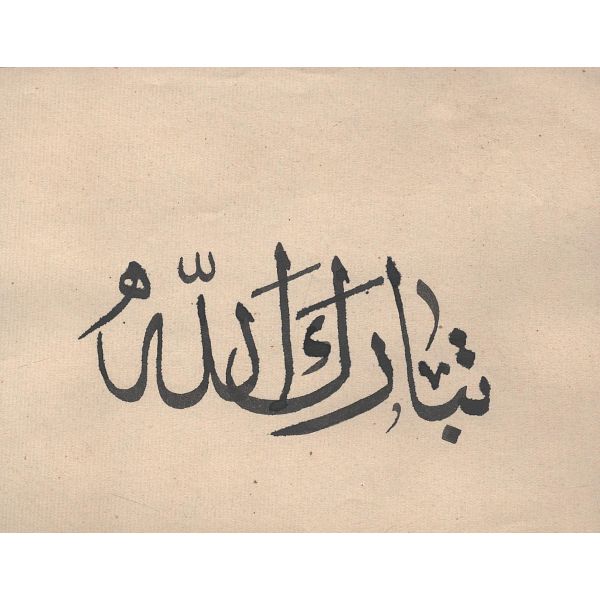 تبارك اللّٰه